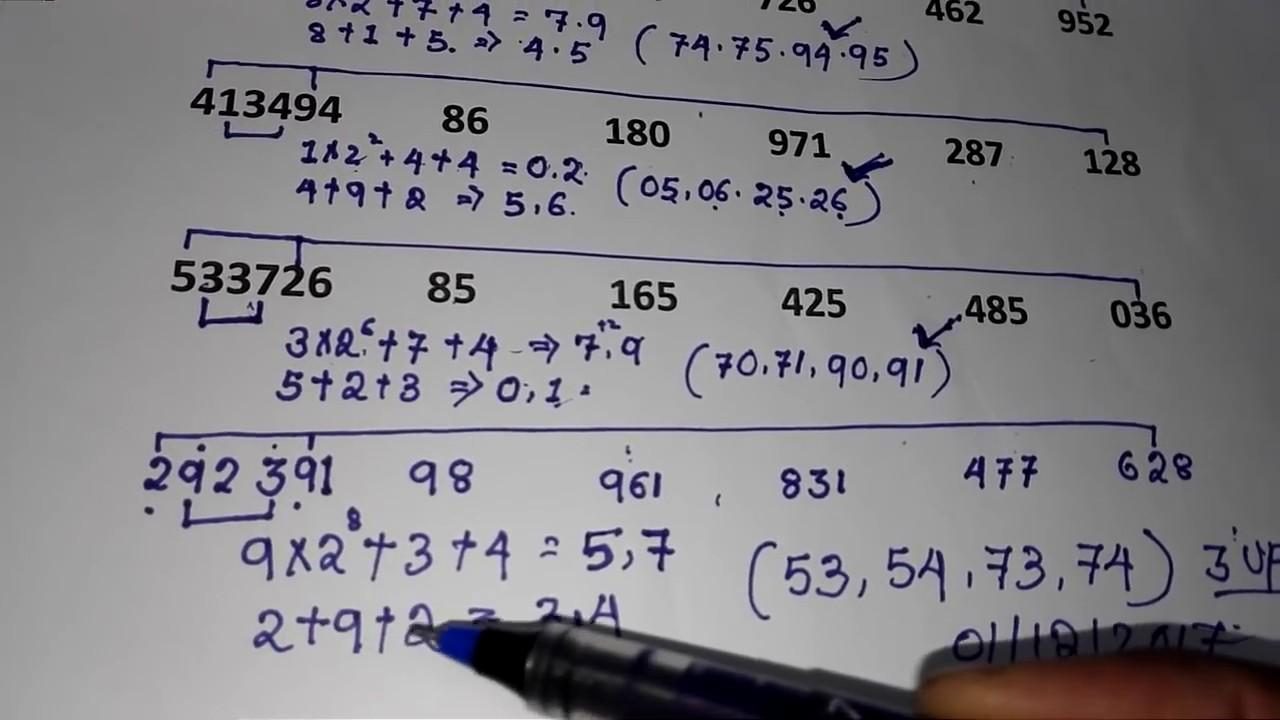 726 462 952
8×2+7+4 = 7.9
8+1+5. ⇒ 4.5 (74.75.94.95)
413494 86 180 971 287 128
1×2²+4+4 =0.2. (05,06.25.26)
4+9+2 ⇒ 5,6.
533726 85 165 425 485 036
3×2⁶+7+4 ⇒ 7,9 +2 (70,71,90,91)
5+2+3 ⇒ 0,1.
292391 98 961 831 477 628
9×2⁸+3+4 = 5,7 (53,54,73,74) 3UP
2+9+2 = 3,4